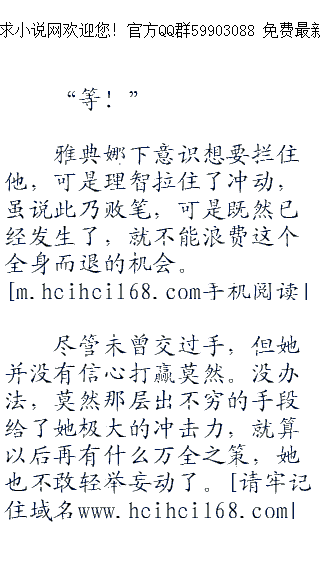 求小说网欢迎您！官方QQ群59903088 免费最新
“等！”
雅典娜下意识想要拦住
他，可是理智拉住了冲动，
虽说此乃败笔，可是既然已
经发生了，就不能浪费这个
全身而退的机会。
[m.hcihci168.com手机阅读|
尽管未曾交过手，但她
并没有信心打赢莫然。没办
法，莫然那层出不穷的手段
给了她极大的冲击力，就算
以后再有什么万全之策，她
也不敢轻举妄动了。[请牢记
住域名www.hcihci168.com|